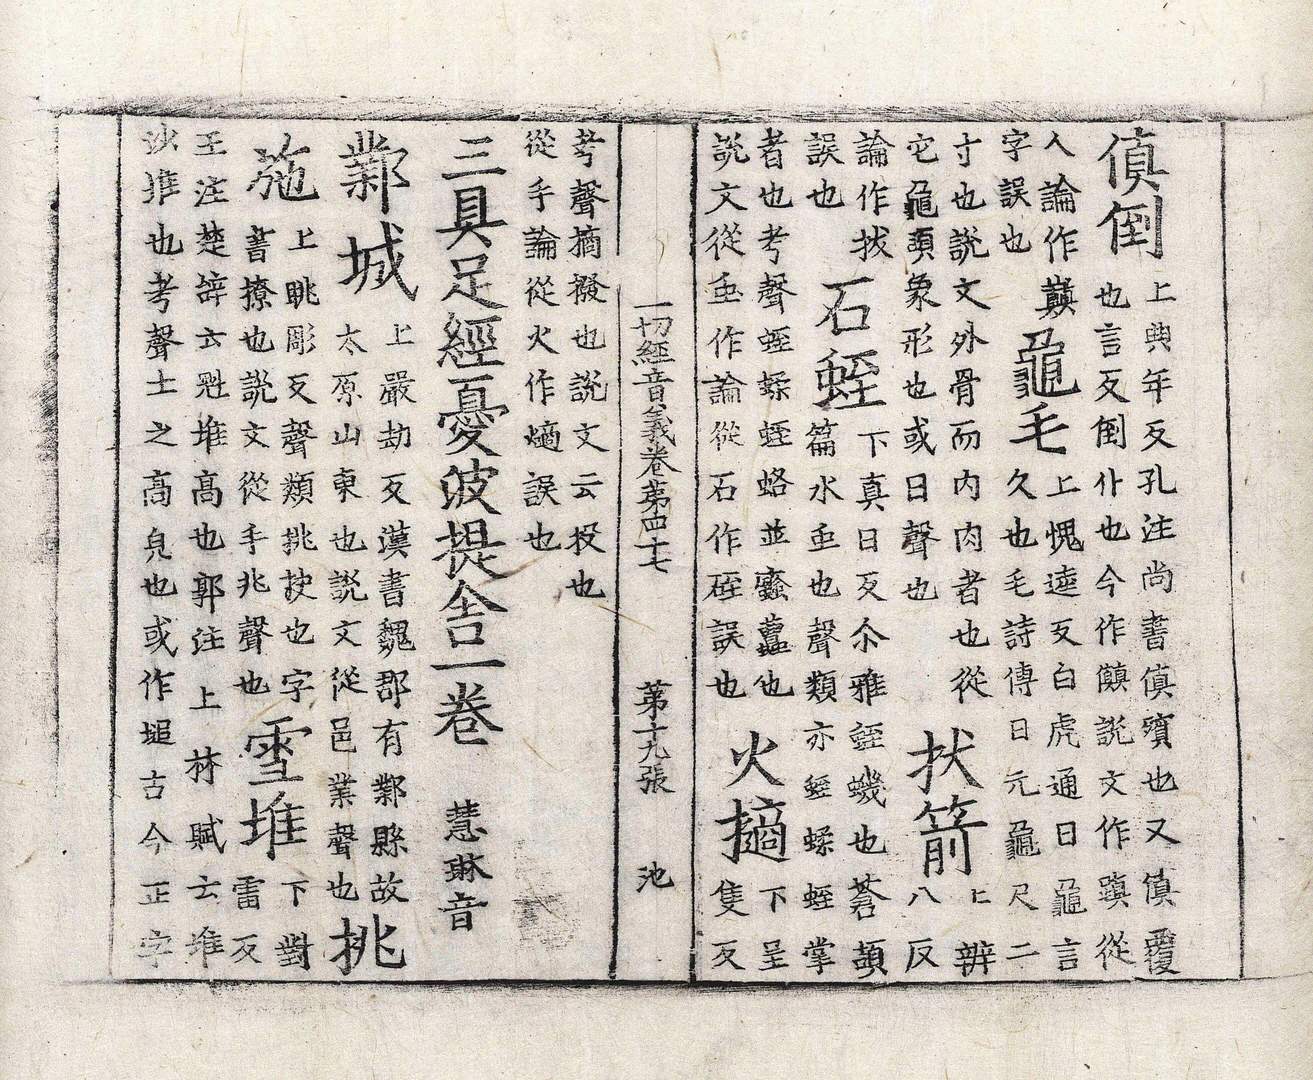 傎倒
上典年反孔注尚書傎殯也又傎覆
也言反倒仆也今作儥說文作蹎從
人論作巔
字誤也
龜毛
上愧逵反白虎通曰龜言
久也毛詩傳曰元龜尺二
寸也說文外骨而內肉者也從
它龜頭象形也或曰聲也
拔箭
上辨
八反
論作拔
誤也
石蛭
下真日反尒雅蛭蟣也蒼頡
篇水虫也聲類亦蛭蝚蛭掌
者也考聲蛭蝚蛭蛒並蠹也
說文從虫作論從石作硾誤也
火擿
下呈
隻反
一切經音義卷第四十七 第十九張 池
考聲擿撥也說文云投也
從手論從火作熵誤也
三具足經憂波提舍一卷 慧琳音
鄴城
上嚴劫反漢書魏郡有鄴縣故
太原山東也說文從邑業聲也
挑
施
上眺彫反聲類挑抉也字
書撩也說文從手兆聲也
雪堆
下對
雷反
王注楚辭云魁堆高也郭注上林賦云堆
沙堆也考聲土之高皃也或作塠古今正字